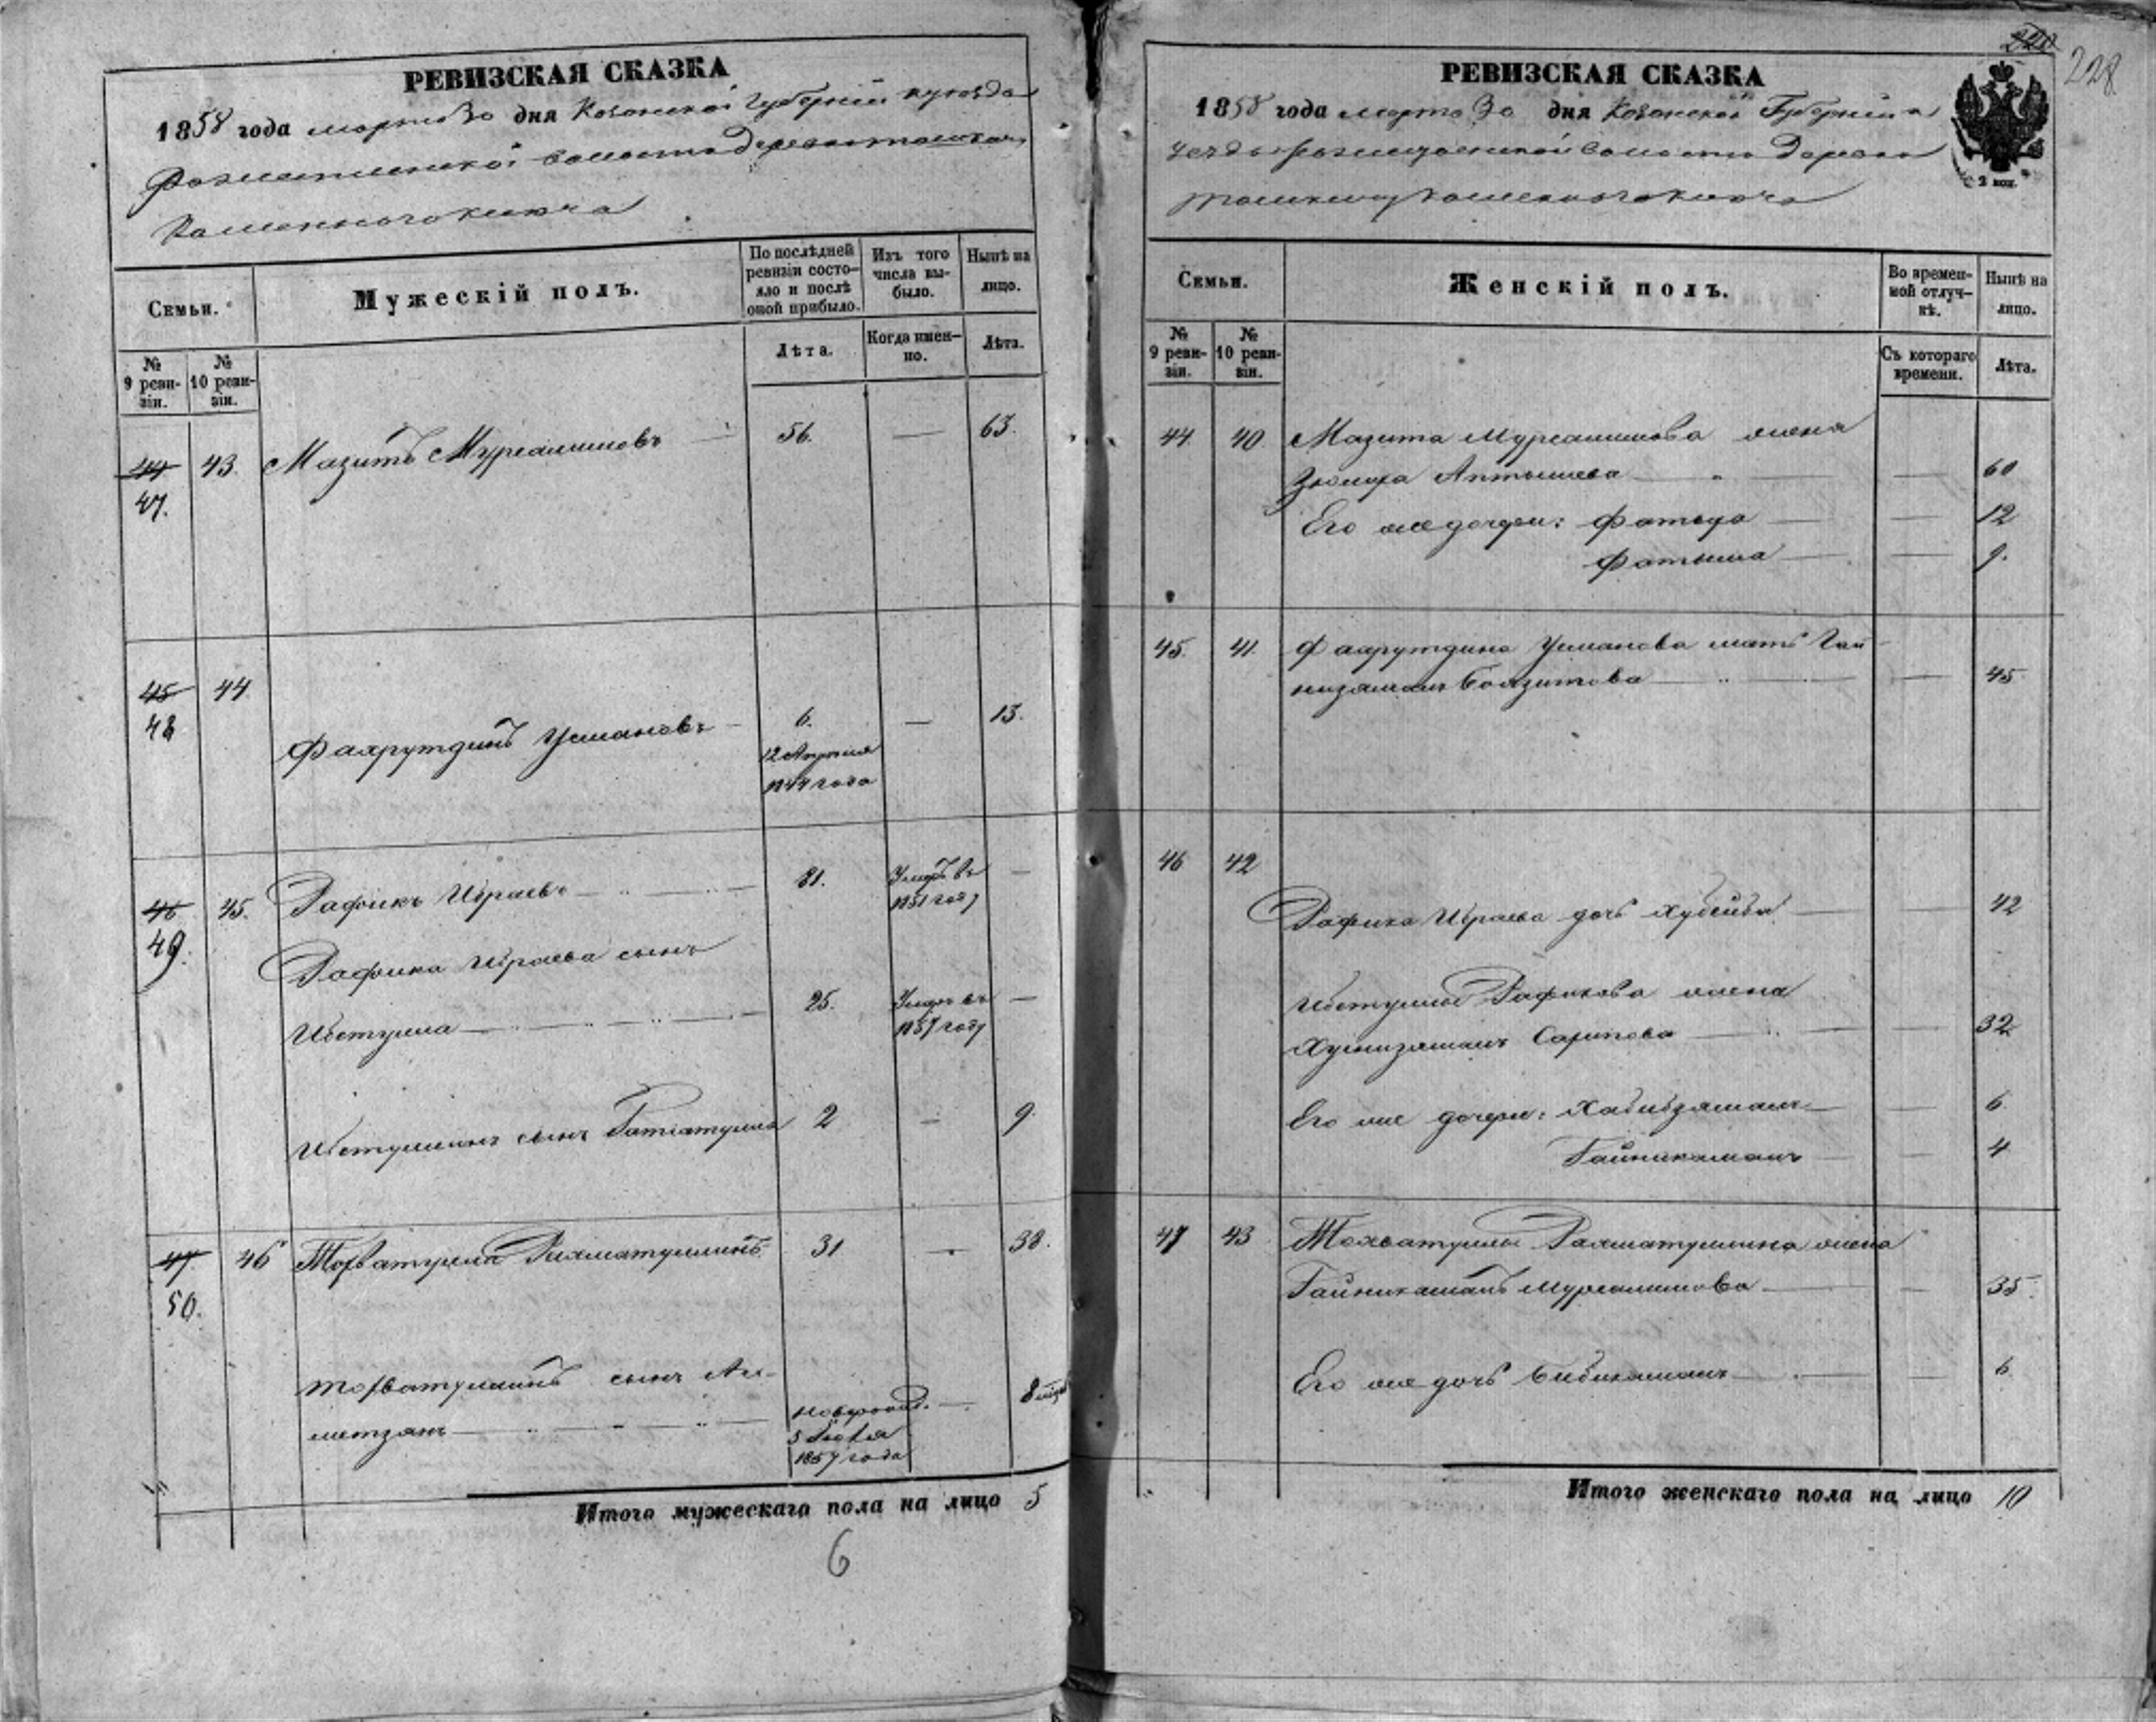 РЕВИЗСКАЯ СКАЗКА
1858 года марта 30 дня Казанской Губернии и уезда
волости Деревни
Каменного ключа
Семьи.
Мужескій полъ.
По послѣдней ревизіи состояло и послѣ оной прибыло.
Изъ того числа выбыло.
Нынѣ на лицо.
№ 9 ревизіи.
№ 10 ревизіи.
Лѣта.
Когда именно.
Лѣта.
44 43. Мазитъ Мургалимовъ 56. — 63.
47.
45 44
48 Фахрутдинъ Усмановъ 6. — 13.
12 Апреля
1844 года
46 45. Рафикъ Ибраевъ 81. Умеръ въ 1851 году —
49. Рафика Ибраева сынъ
25. Умеръ въ 1857 году —
сынъ 2 — 9
47 46 Рахматуллинъ 31 — 38.
50.
сынъ Ах-
метзянъ новорожд. — 8 мѣсяц
5 Июля
1857 года
Итого мужескаго пола на лицо 5
6
228
РЕВИЗСКАЯ СКАЗКА
1858 года марта 30 дня Казанской Губернии и
уезда волости Деревни
Каменного ключа
2 коп.
Семьи.
Женскій полъ.
Во временной отлучкѣ.
Нынѣ на лицо.
№ 9 ревизіи.
№ 10 ревизіи.
Съ котораго времени.
Лѣта.
44. 40. Мазита Мургалимова жена
Зюлюха Аптышева — 60
Его же дочери: Фатыха — 12
Фатыма — 9.
45. 41. Фахрутдина Усманова мать Гай-
низямалъ Баязитова — 45
46 42
Рафика Ибраева дочь Хубейба — 42
Рафикова жена
Хуснизямалъ Сарипова — 32
Его же дочери: Хабибзямалъ — 6.
Гайникамалъ — 4
47 43 Рахматуллина жена
Гайникамалъ Мургалимова — 35.
Его же дочь Бибикамалъ — 6
Итого женскаго пола на лицо 10